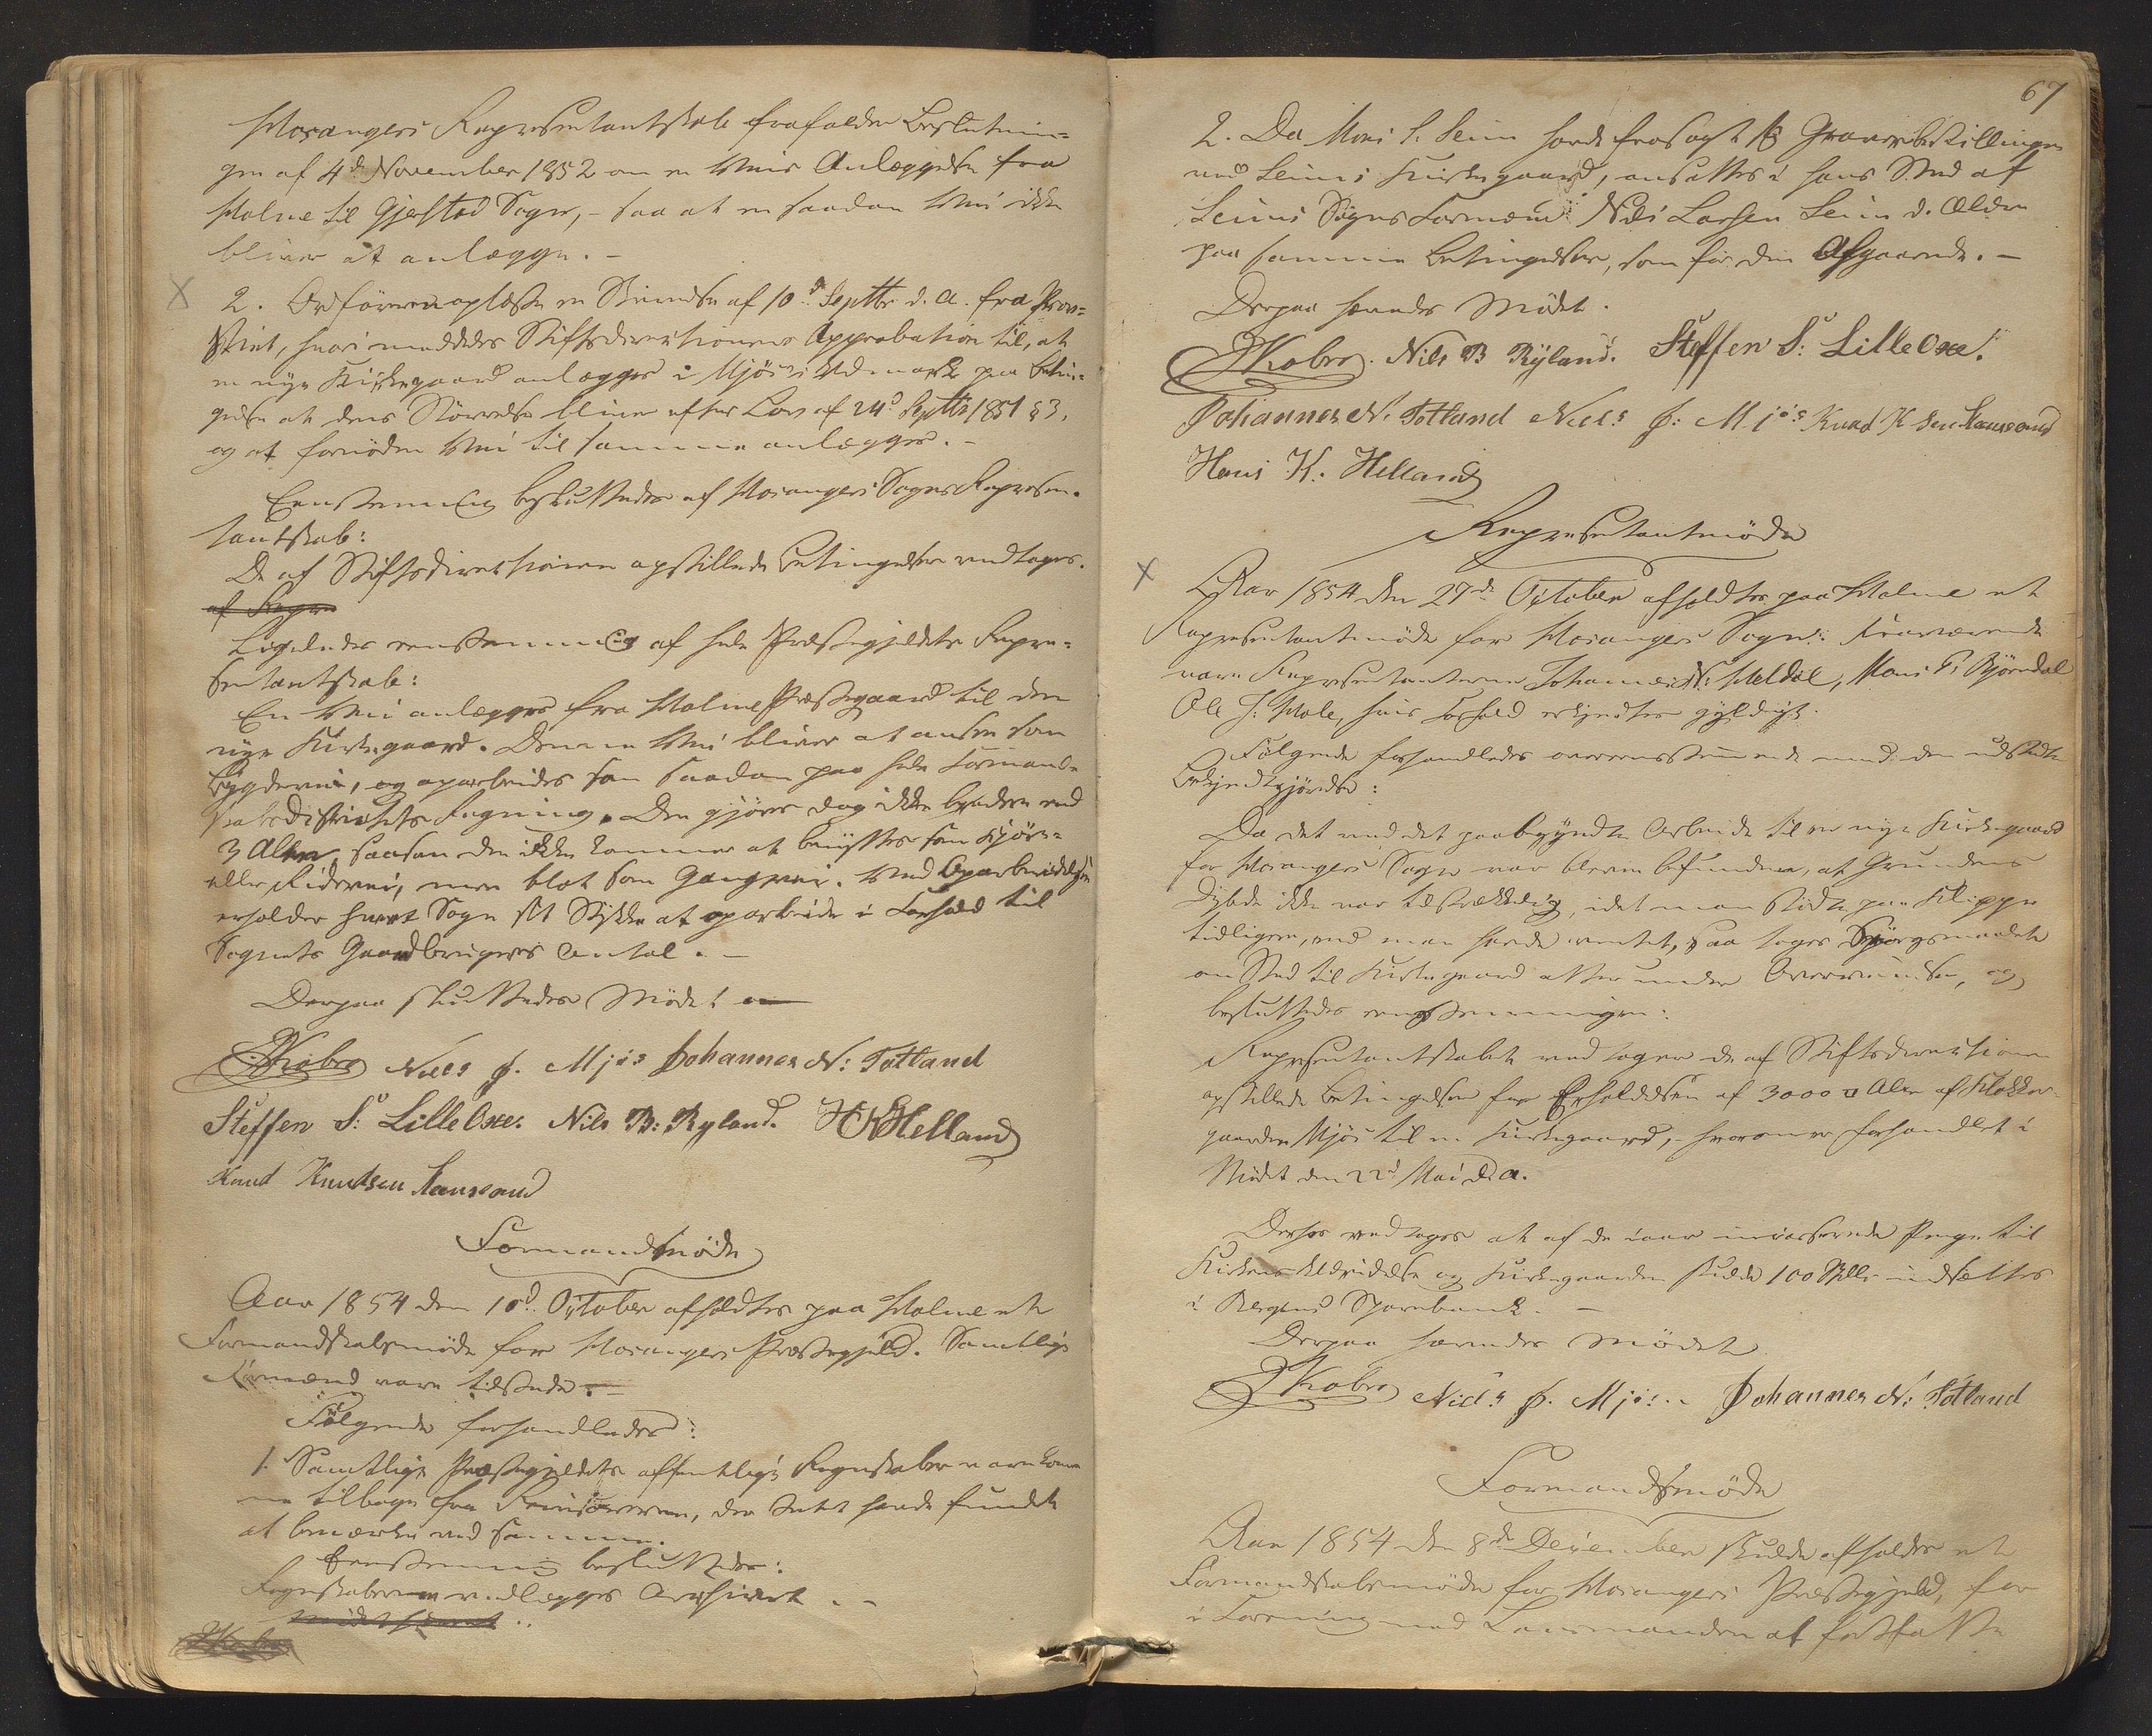 Hosangers Repræsentantskab frafalder Beslutnin-
gen af 4de November 1852 om en Veis Anlæggelse fra
Holme til Gjerstad Sogn, – saa at en saadan Vei ikke
bliver at anlægge. –
2. Ordføreren oplæste en Skrivelse af 10de Septbr d. A. fra Prov-
stiet, hvori meddeles Stiftsdirectionens Approbation til, at
en nye Kirkegaard anlægges i Mjøs's Udmark paa Betin-
gelse at dens Størrelse bliver efter Lov af 24d Septbr 1851 §3,
og at fornøden Vei til samme anlægges. –
Eenstemmig besluttedes af Hosangers Sogns Repræsen-
tantskab:
De af Stiftsdirectionen opstillede Betingelser vedtages.
af Repræ
Ligeledes eenstemmig af hele Præstegjeldets Repræ-
sentantskab:
En Vei anlægges fra Holme Præstegaard til den
nye Kirkegaard. Denne Vei bliver at ansee som
Bygdevei, og oparbeides som saadan paa hele Formand-
skabsdistrictets Regning. Den gjøres dog ikke bredere end
3 Alen, saasom den ikke kommer at benyttes som Kjøre-
eller Ridevei, men blot som Gangvei. Ved Oparbeidelsen
erholder hvert Sogn sit Stykke at oparbeide i Forhold til
Sognets Gaardbrugeres Antal. –
Derpaa sluttedes Mødet
JKobro Niels J. Mjøs Johannes N: Totland
Steffen S: Lille Oxe. Nils B: Ryland. H K Helland
Knud Knudsen
Formandsmøde
Aar 1854 den 10d October afholdtes paa Holme et
Formandskabsmøde for Hosangers Præstegjeld. Samtlige
Formænd vare tilstede. –
Følgende forhandledes:
1. Samtlige Præstegjeldets offentlige Regnskaber vare komne
tilbage fra Revisoreren, der Intet havde fundet
at bemærke ved samme.
Eenstemmig besluttedes:
Regnskaberne vedlægges Archivet. –
Mødet hævet
JKobro
67
2. Da Mons S. Seim havde frasagt sig Graverbestillingen
ved Seims Kirkegaard, ansattes i hans Sted af
Seims Sogns Formænd: Nils Larsen Seim d. Ældre
paa samme Betingelser, som for den Afgaaende. –
Derpaa hævedes Mødet.
JKobro. Nils B Ryland. Steffen S: Lille Oxe.
Johannes N: Totland Niels J: Mjøs Knud K
Hans K. Helland
Repræsentantmøde
Aar 1854 den 27de October afholdtes paa Holme et
Repræsentantmøde for Hosangers Sogn. Fraværende
vare Repræsentanterne Johannes N: Meldal, Mons Bjørndal
Ole J: Hole, hvis Forfald erkjendtes gyldigt.
Følgende forhandledes overensstemmende med den udstedte
Bekjendtgjørelse:
Da det ved det paabegyndte Arbeide til en nye Kirkegaard
for Hosangers Sogn var bleven befunden, at Grundens
Dybde ikke var tilstrækkelig, idet man stødte paa Klippe
tidligere, end man havde ventet, saa toges Spørgsmaalet
om Sted til Kirkegaard atter under Overveielse, og
besluttedes eenstemmigen:
Repræsentantskabet vedtager de af Stiftsdirectionen
opstillede Betingelser for Erholdelsen af 3000 □ Alen af Klokker-
gaarden Mjøs til en Kirkegaard, – hvorom er forhandlet i
Mødet den 22d Mai d. A.
Derhos vedtoges at af de iaar incasserede Penge til
Kirkens Udvidelse og Kirkegaarden skulde 100 Spdlr indsættes
i Bergens Sparebank. –
Derpaa hævedes Mødet
JKobro Niels J. Mjøs. Johannes N: Totland
Formandsmøde
Aar 1854 den 8de December skulde afholdes et
Formandskabsmøde for Hosangers Præstegjeld, for
i Forening med Lensmanden at forfatte